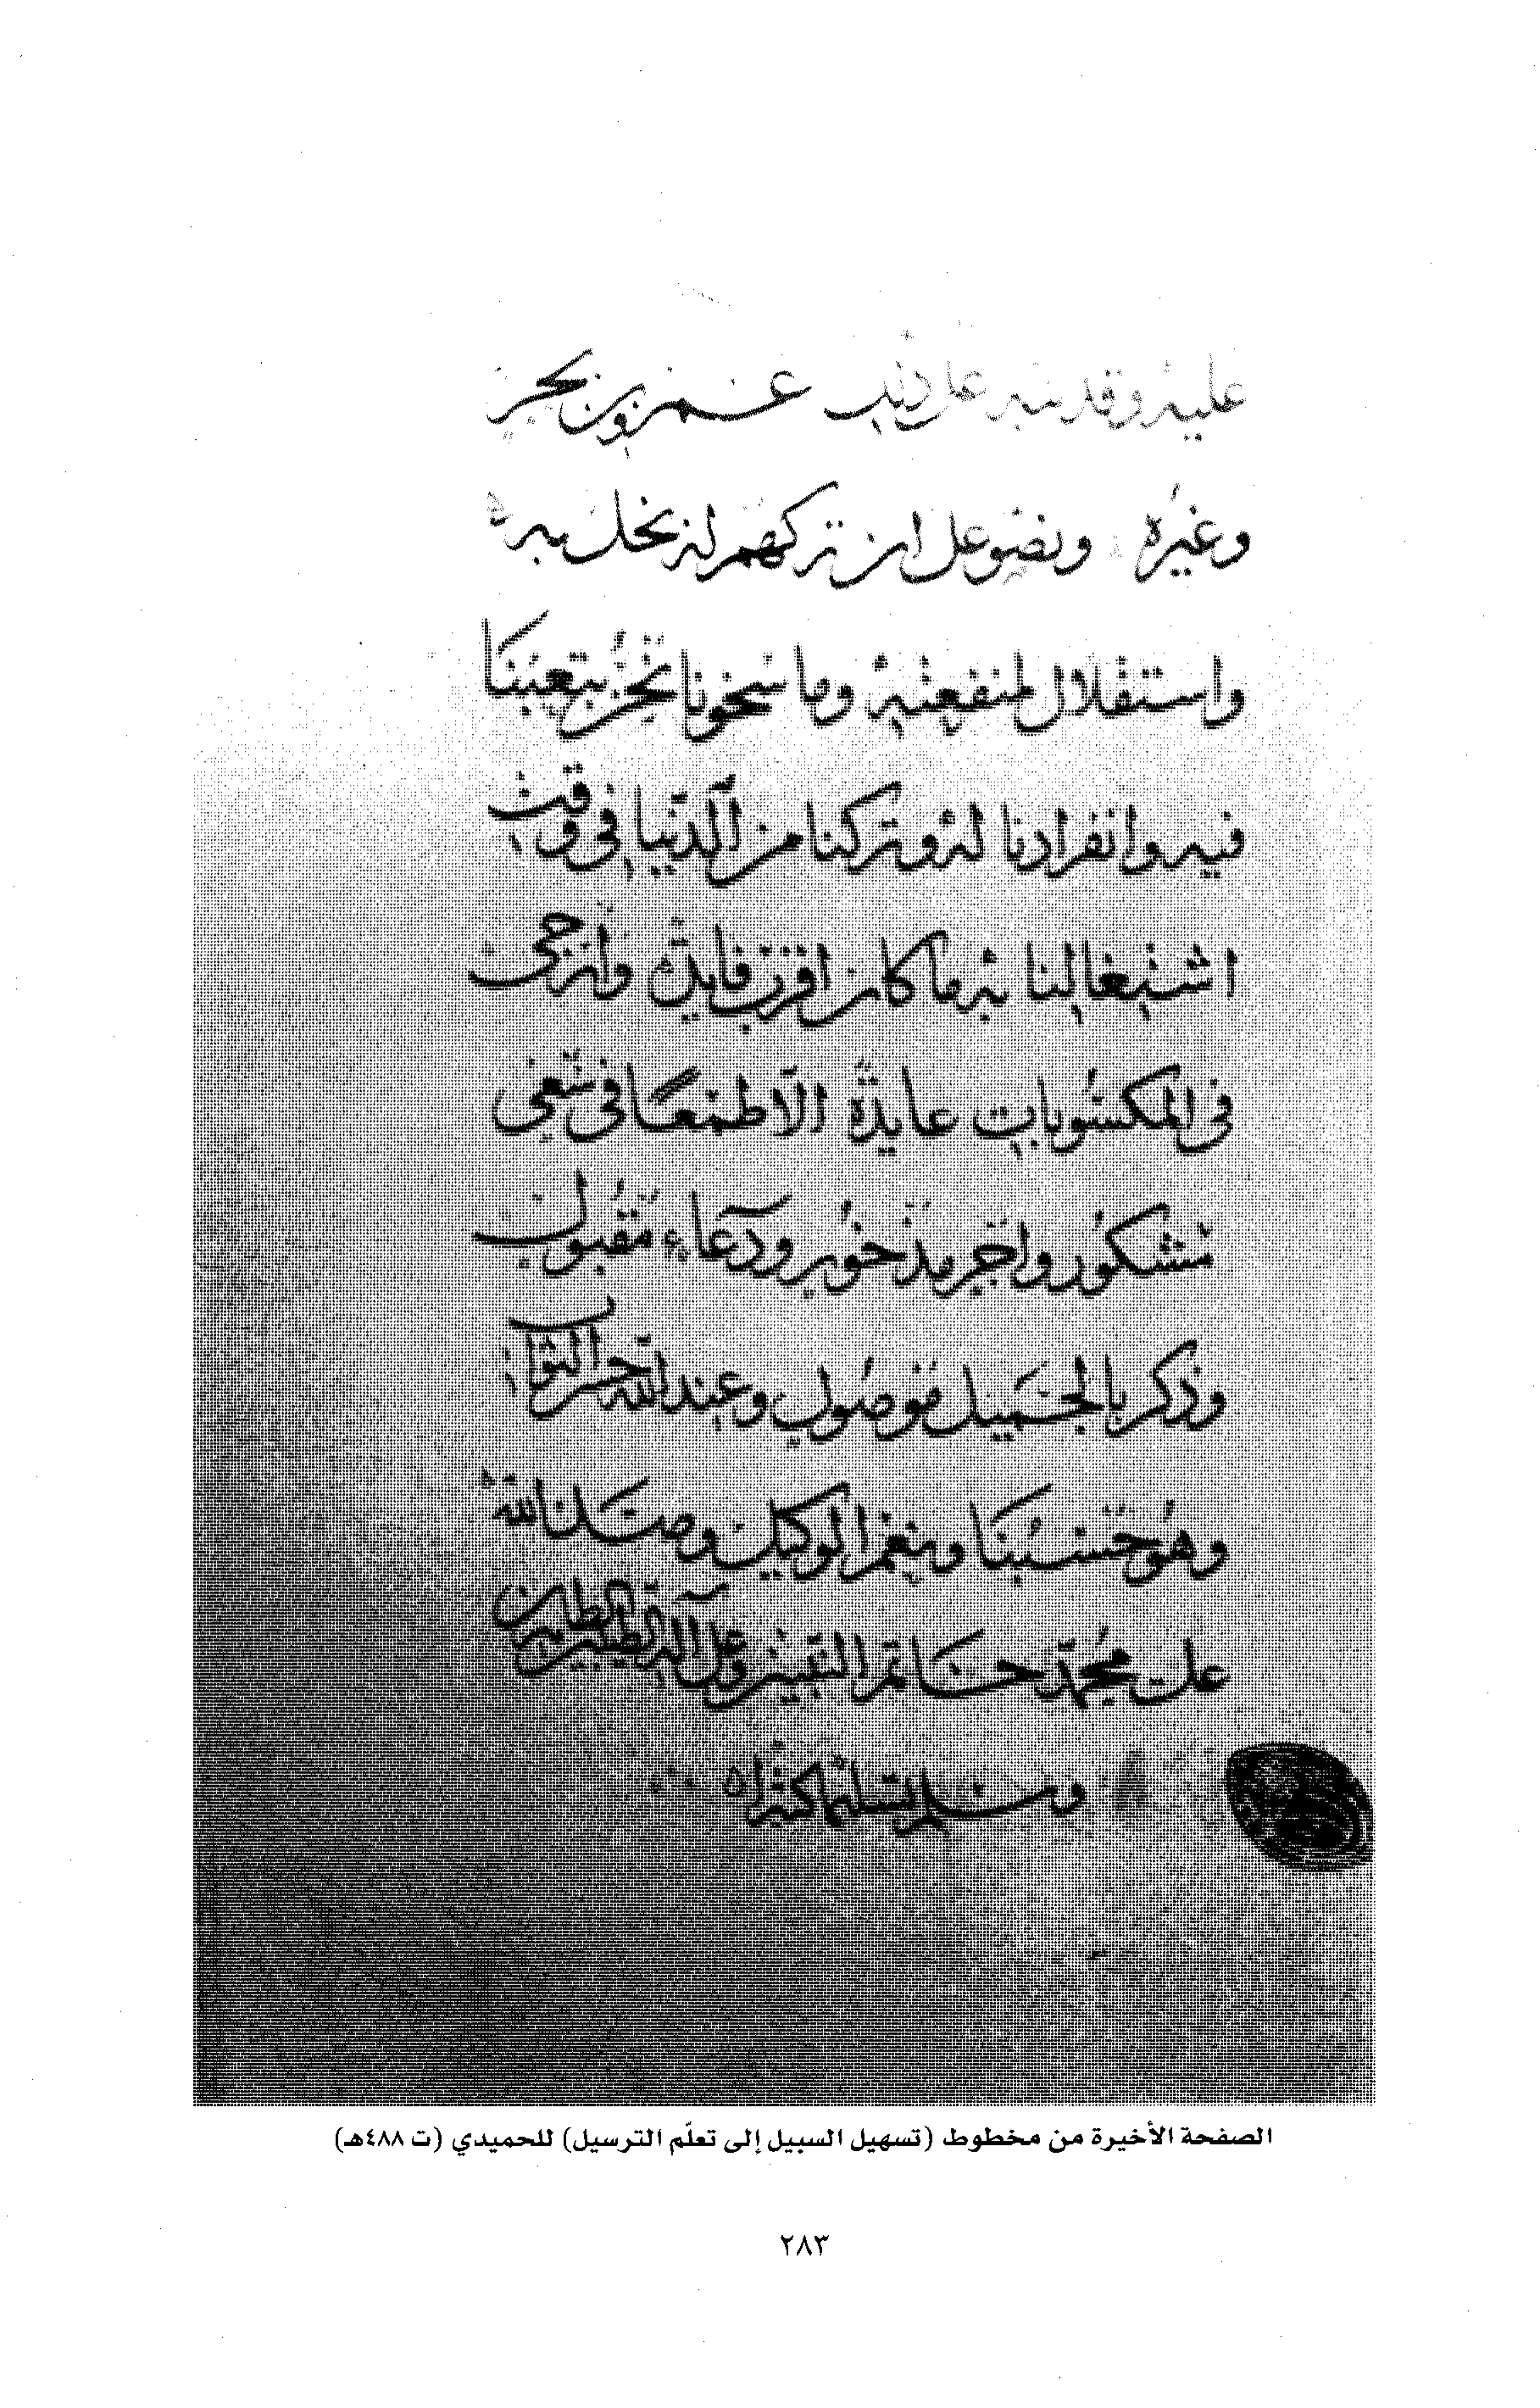 عليه وقد نبه على ذلك عمرو بن بحر
وغيره ونصوا على ان تركهم لم نخل به
واستقلال لمنفعته وما سخونا نحن بتعبنا
فيه وانفرادنا له وتركنا من الدنيا في وقت
اشتغالنا به ما كان اقرب فايدة وارجى
في المكسوبات عايدة الا طمعا في سعي
مشكور واجر مذخور ودعاء مقبول
وذكر بالجميل موصول وعند الله حسن الثواب
وهو حسبنا ونعم الوكيل وصلى الله
على محمد خاتم النبيين وعلى آله الطيبين الطاهرين
وسلم تسليما كثيرا
الصفحة الأخيرة من مخطوط (تسهيل السبيل إلى تعلّم الترسيل) للحميدي (ت ٤٨٨هـ)
٢٨٣